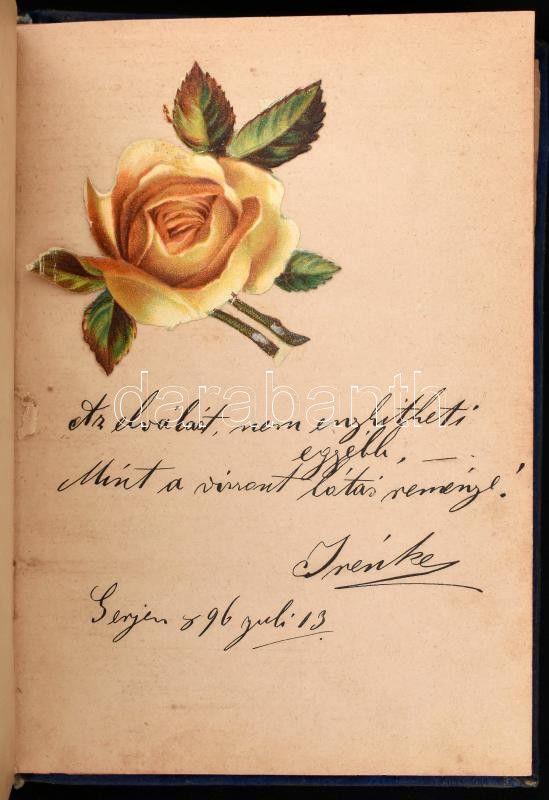 Az elválást, nem enyhitheti
egyébb, —.
Mint a viszont látás reménye!
Irénke
Gerjen 896 juli 13
darabanth